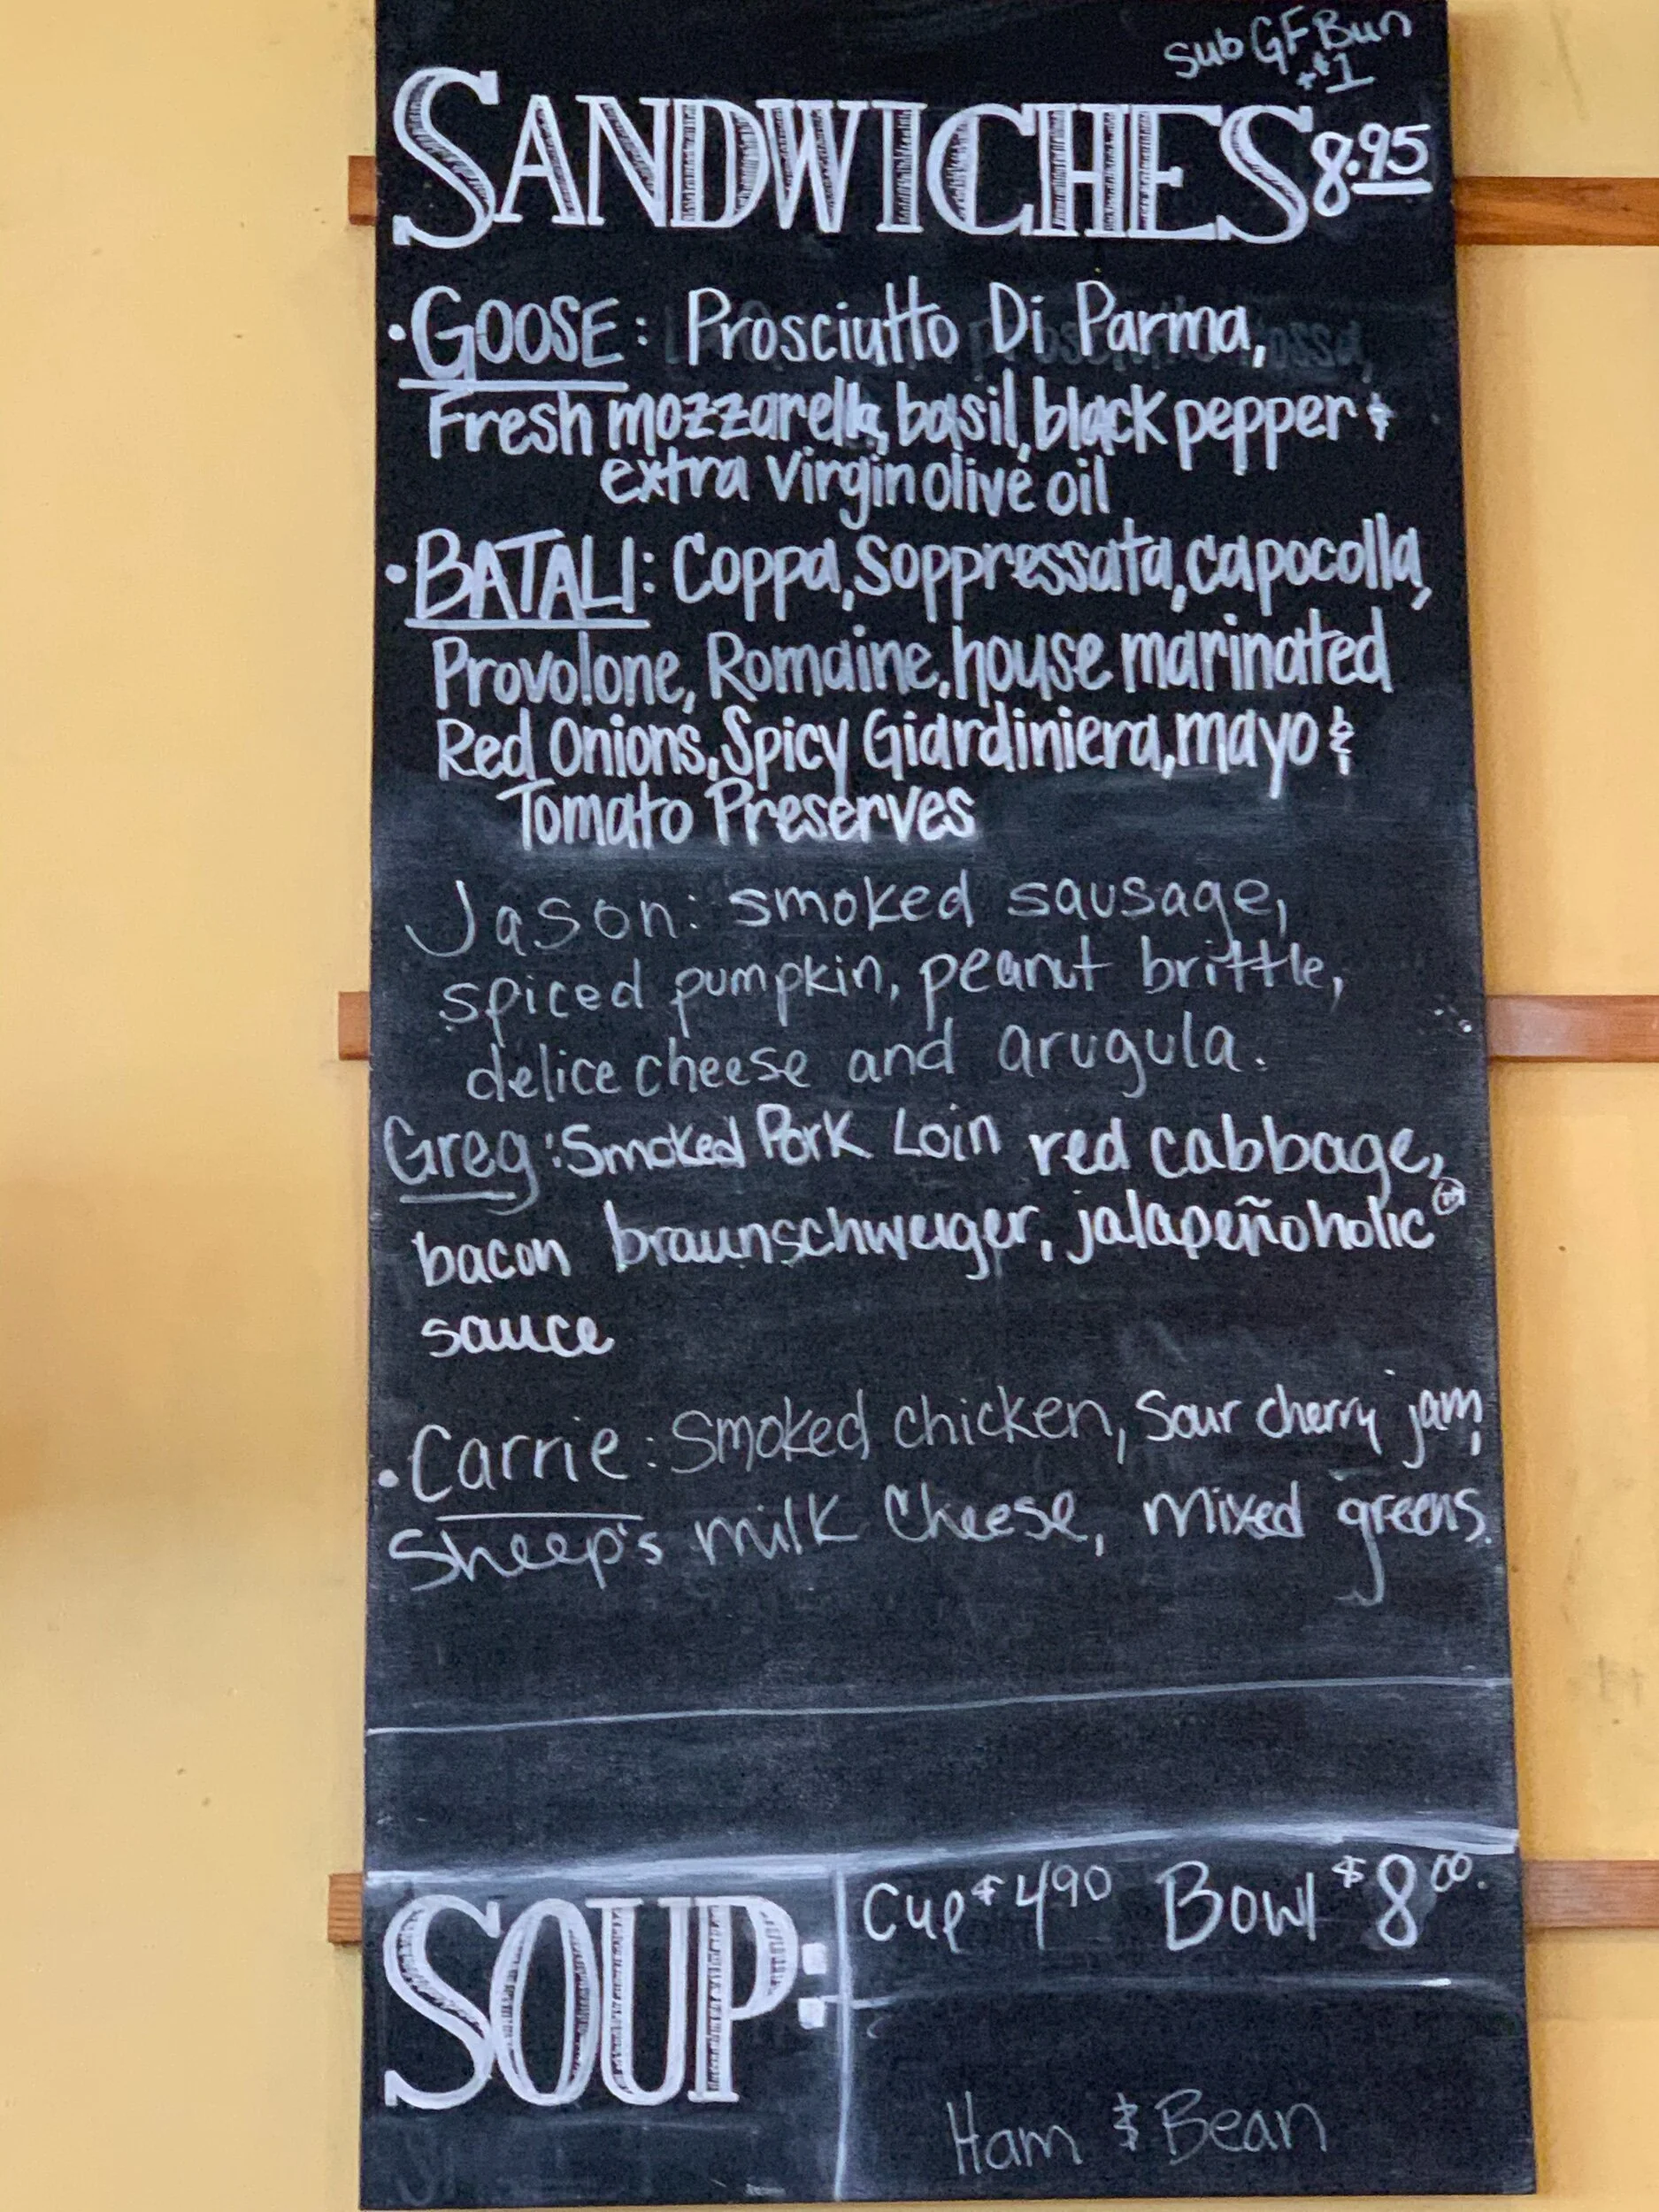 Sub GF Bun
+$1
SANDWICHES 8.95
• GOOSE: Prosciutto Di Parma,
Fresh mozzarella, basil, black pepper &
extra virgin olive oil
• BATALI: Coppa, Soppressata, capocolla,
Provolone, Romaine, house marinated
Red Onions, Spicy Giardiniera, mayo &
Tomato Preserves
Jason: smoked sausage,
spiced pumpkin, peanut brittle,
delice cheese and arugula.
Greg: Smoked Pork Loin red cabbage,
bacon braunschweiger, jalapeñoholic
sauce
• Carrie: Smoked chicken, Sour cherry jam,
Sheep's milk Cheese, mixed greens.
SOUP: Cup $4.90 Bowl $8.00
Ham & Bean